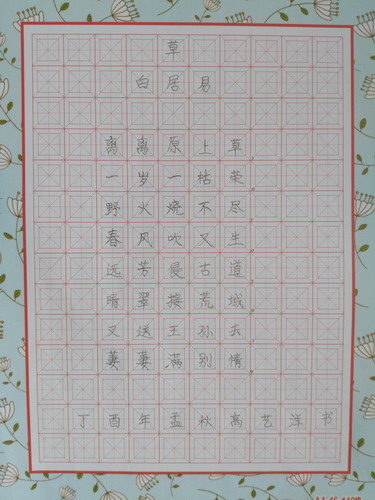 草
白居易
离离原上草
一岁一枯荣
野火烧不尽
春风吹又生
远芳侵古道
晴翠接荒城
又送王孙去
萋萋满别情
丁酉年孟秋高艺洋书